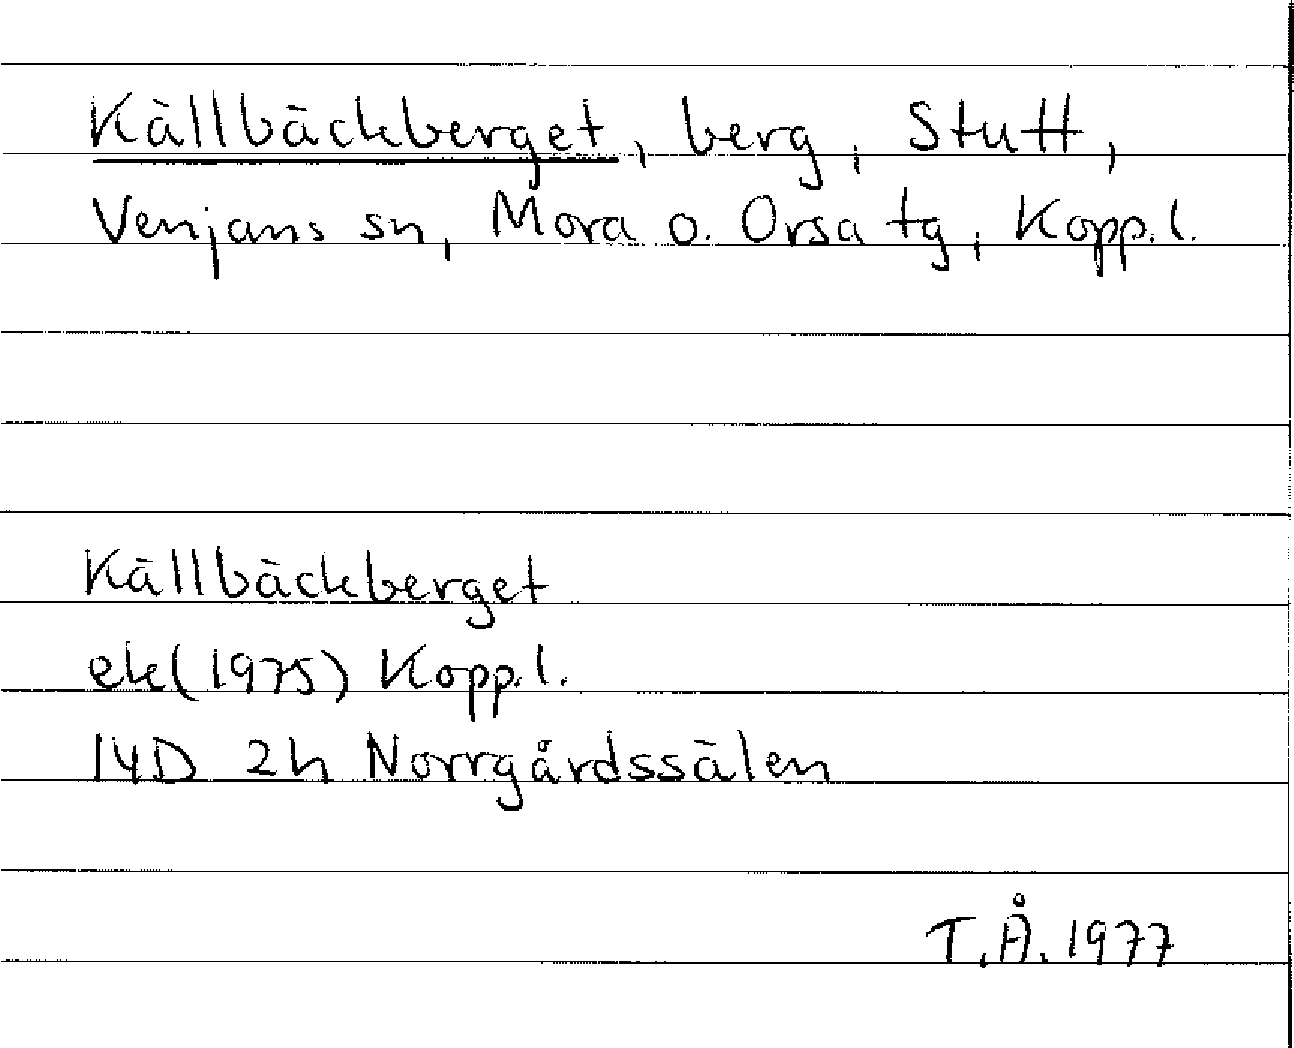 Källbäckberget, berg, Stutt,
Venjans sn, Mora o. Orsa tg, Kopp.l.
Källbäckberget
ek(1975) Kopp.l.
14D 2h Norrgårdssälen
T.Å. 1977